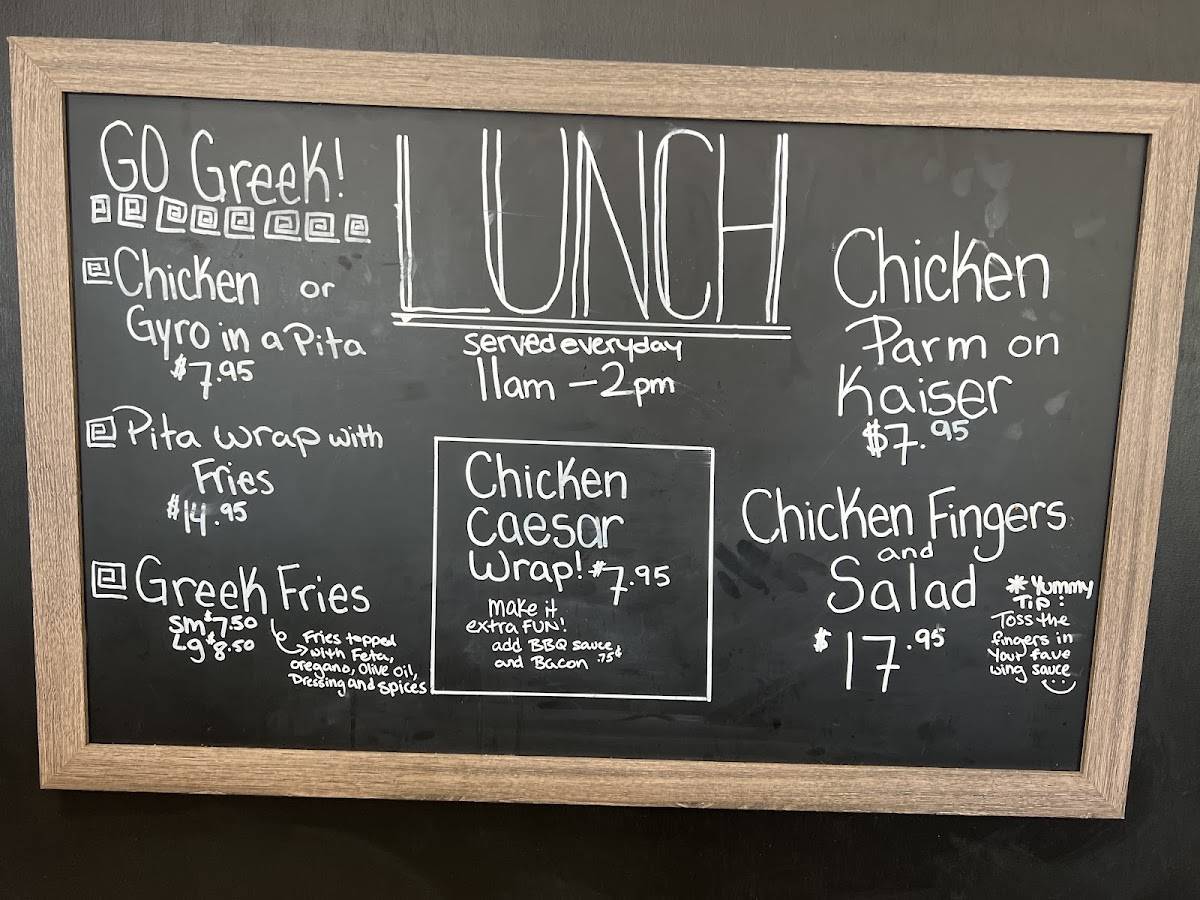 GO Greek!
Chicken or
Gyro in a Pita
$7.95
Pita wrap with
Fries
$14.95
Greek Fries
Sm $7.50
Lg $8.50
Fries topped
with Feta,
oregano, Olive oil,
Dressing and spices
LUNCH
served everyday
11am - 2pm
Chicken
Caesar
Wrap! $7.95
make it
extra FUN!
add BBQ sauce
and Bacon .75¢
Chicken
Parm on
Kaiser
$7.95
Chicken Fingers
and
Salad
$17.95
* Yummy
Tip:
Toss the
fingers in
Your fave
wing sauce